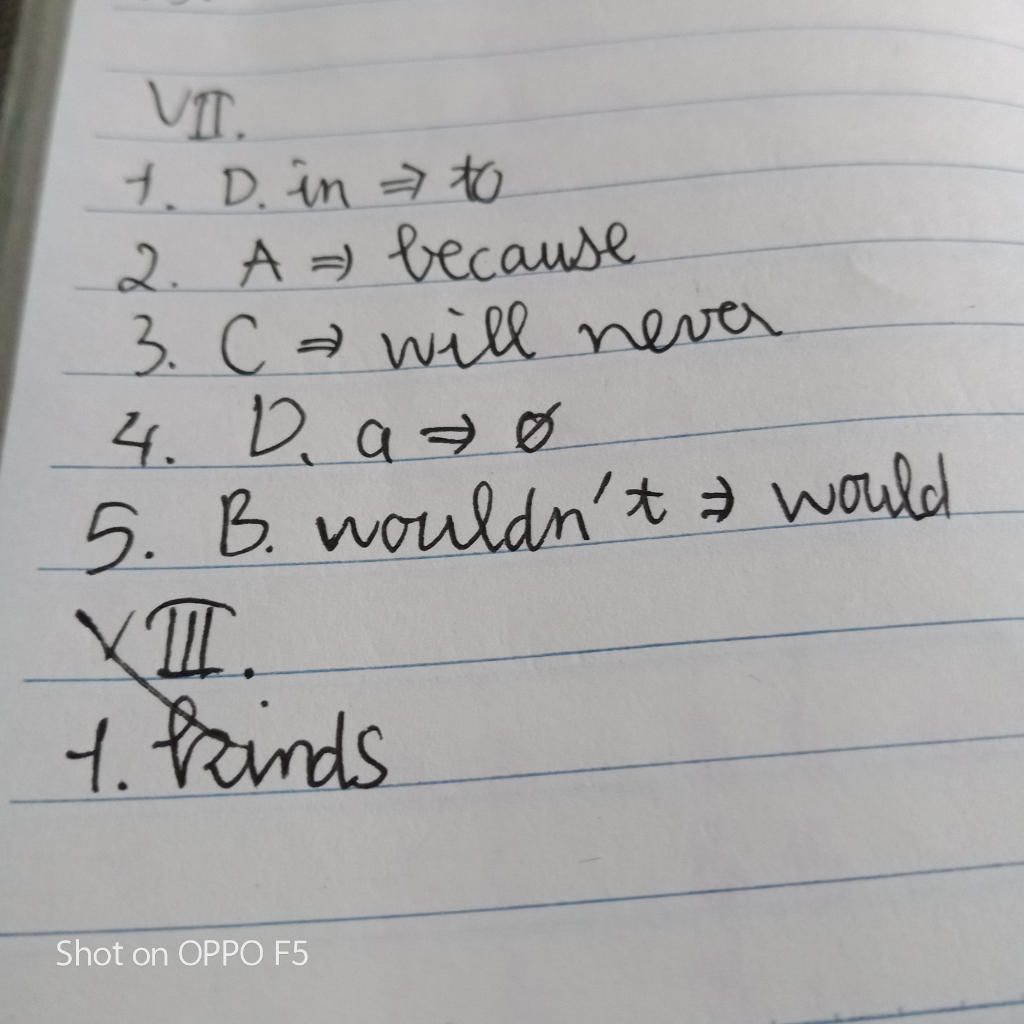 VII.
1. D. in ⇒ to
2. A ⇒ because
3. C ⇒ will never
4. D. a ⇒ ø
5. B. wouldn't ⇒ would
VIII.
1. kinds
Shot on OPPO F5